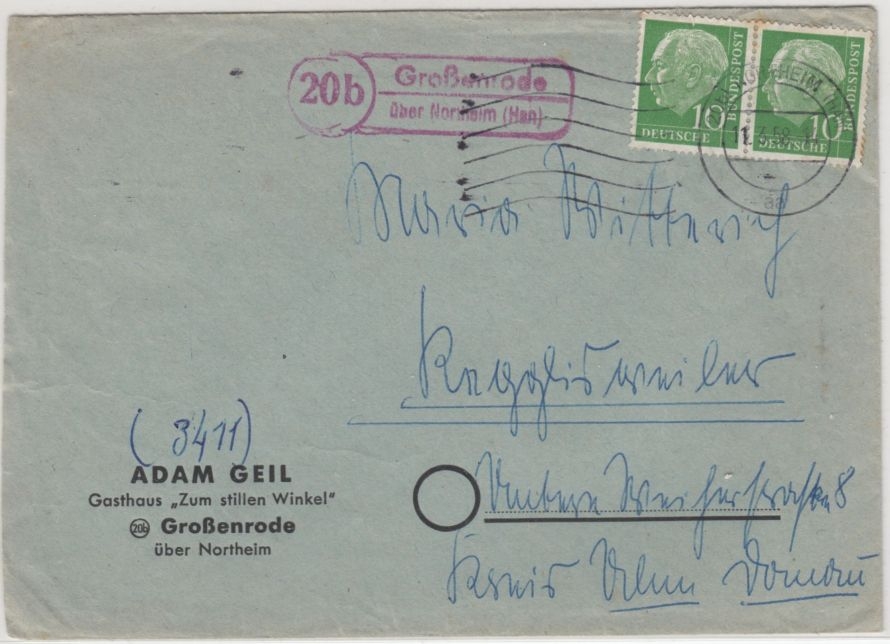 20b
Großenrode
über Northeim (Han)
10
DEUTSCHE
BUNDESPOST
10
DEUTSCHE
BUNDESPOST
NORTHEIM (HAN
11.4.58
aa
Maria Mitterich
Regglisweiler
Untere Weiherstraße 8
Kreis Ulm Donau
(3411)
ADAM GEIL
Gasthaus „Zum stillen Winkel“
20b Großenrode
über Northeim